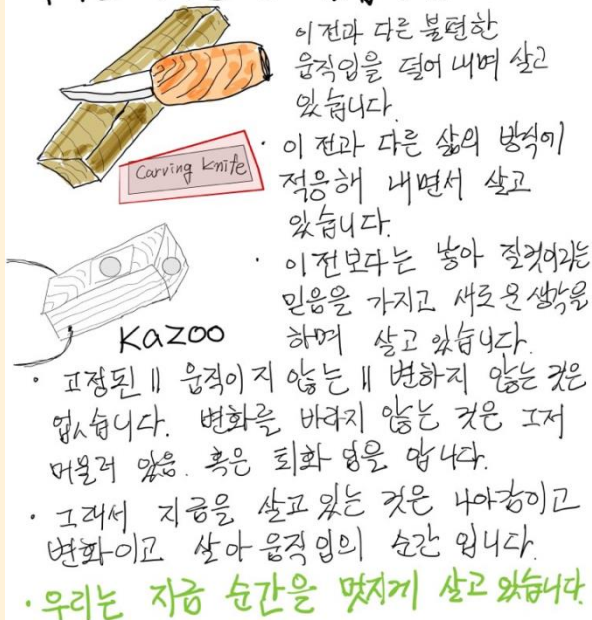 이전과 다른 불편한
움직임을 덜어 내며 살고
있습니다.
Carving knife
· 이 전과 다른 삶의 방식에
적응해 내면서 살고
있습니다.
· 이전보다는 낳아 질것이라는
믿음을 가지고 새로운생각을
하며 살고 있습니다.
Kazoo
· 고정된 || 움직이지 않는 || 변하지 않는 것은
없습니다. 변화를 바라지 않는 것은 그저
머물러 있음. 혹은 퇴화 임을 압니다.
· 그래서 지금을 살고 있는 것은 나아감이고
변화이고 살아 움직임의 순간 입니다.
· 우리는 지금 순간을 멋지게 살고 있습니다.